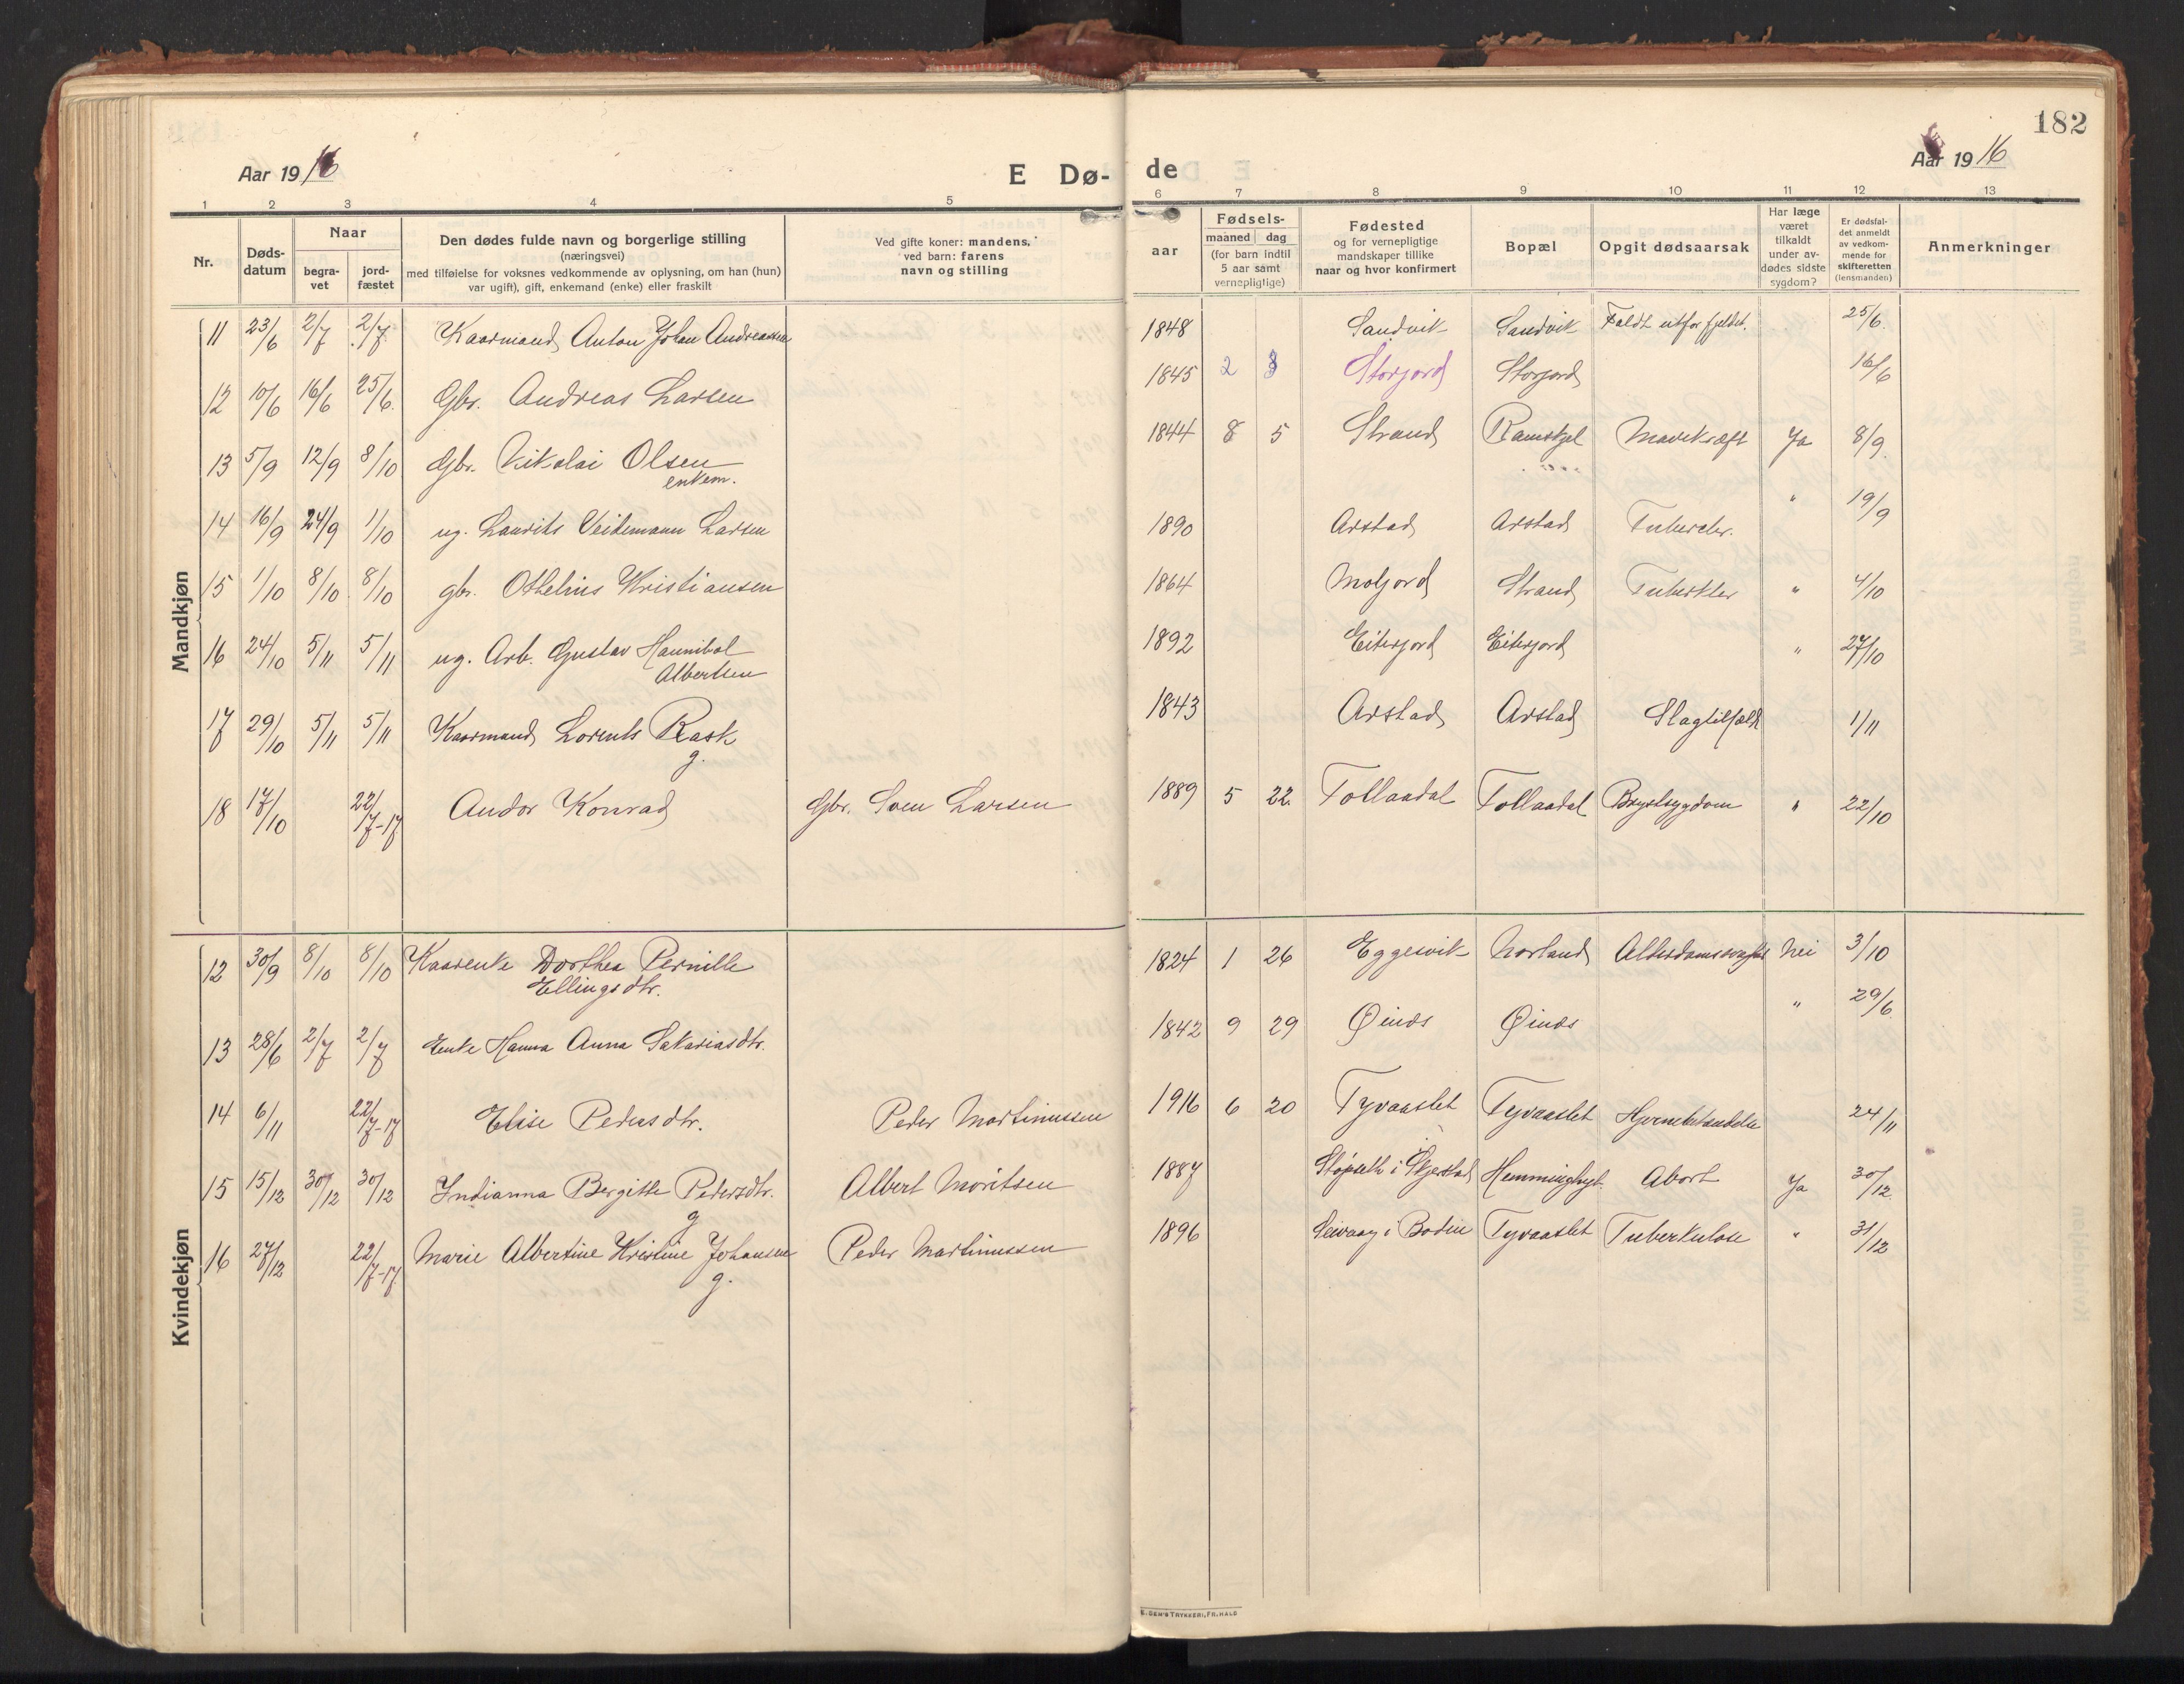 182
Aar 1916 E Dø- de Aar 1916
1 2 3 4 5 6 7 8 9 10 11 12 13
Nr. Døds-datum Naar begra-vet jord-fæstet Den dødes fulde navn og borgerlige stilling (næringsvei) med tilføielse for voksnes vedkommende av oplysning, om han (hun) var ugift), gift, enkemand (enke) eller fraskilt Ved gifte koner: mandens, ved barn: farens navn og stilling aar Fødsels- maaned dag (for barn indtil 5 aar samt vernepligtige) Fødested og for vernepligtige mandskaper tillike naar og hvor konfirmert Bopæl Opgit dødsaarsak Har læge været tilkaldt under av-dødes sidste sygdom? Er dødsfal-det anmeldt av vedkom-mende for skifteretten (lensmanden) Anmerkninger
Mandkjøn
11 23/6 2/7 2/7 Kaarmand Anton Johan Andreassen 1848 Sandvik Sandvik Faldt utfor fjeldet. 25/6
12 10/6 16/6 25/6 Gbr. Andreas Larsen 1845 2 Storjord Storjord 16/6
13 5/9 12/9 8/10 Gbr. Nikolai Olsen 1844 8 5 Strand Ramskjel Mavekræft Ja 8/9
enkem.
14 16/9 24/9 1/10 ug. Laurits Veidemann Larsen 1890 Arstad Arstad Tubercler. " 19/9
15 1/10 8/10 8/10 gbr. Othelius Kristiansen 1864 Moljord Strand Tuberkler " 4/10
16 24/10 5/11 5/11 ug. Arb. Gustav Hannibal 1892 Eiterjord Eiterjord " 27/10
Albertsen
17 29/10 5/11 5/11 Kaarmand Lorents Rask 1843 Arstad Arstad Slagtilfælde 1/11
g.
18 17/10 22/7-17 Andor Konrad Gbr. Sven Larsen 1889 5 22. Tollaadal Tollaadal Brystsygdom " 22/10
Kvindekjøn
12 30/9 8/10 8/10 Kaarenke Dorthea Pernille 1824 1 26 Eggesvik Norland Alderdomssvaghet Nei 3/10
Ellingsdtr.
13 28/6 2/7 2/7 Enke Hanna Anna Sakariasdtr. 1842 9 29 Øines Øines " 29/6
14 6/11 22/7-17 Elise Pedersdtr. Peder Martinussen 1916 6 20 Tyvaaslet Tyvaaslet Hjernebetændelse 24/11
15 15/12 30/12 30/12 Indianna Bergitte Pedersdtr. Albert Moritsen 1887 i Skjerstad Hemminghyt. Abort Ja 30/12
g
16 27/12 22/7-17 Marie Albertine Kristine Johansen Peder Martinussen 1896 Seivaag i Bodin Tyvaaslet Tuberkulose " 31/12
g.
E. SEM'S TRYKKERI, FR.HALD